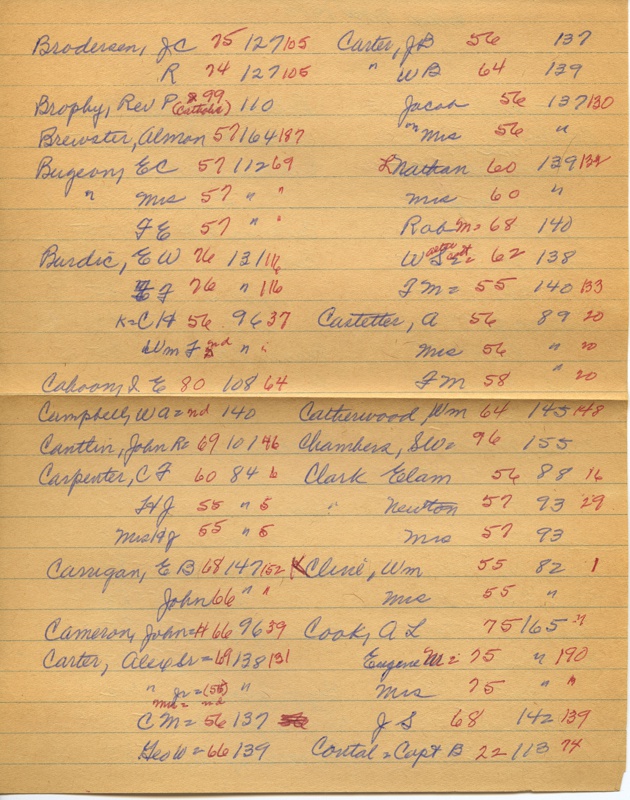 Brodersen, J C 75 127 105
R 74 127 105
Brophy, Rev P & 99 (Catholic) 110
Brewster, Almon 57 164 187
Bugeon, E C 57 112 69
" Mrs 57 " "
F E 57 " "
Burdic, E W 76 131 116
E F 76 " 116
K=C H 56 96 37
Wm F nd " "
Cahoon, I E 80 108 64
Campbell, W A = nd 140
Cantlin, John R= 69 101 46
Carpenter, C F 60 84 6
H J 55 " 5
Mrs H J 55 " 5
Carrigan, E B 68 147 152
John 66 " "
Cameron, John=H 66 96 39
Carter, Alex Sr = 69 138 131
" Jr = (55) "
Mrs = nd
C M = 56 137
Geo W = 66 139
Carter, J B 56 137
" W B 64 139
Jacob 56 137 130
" Mrs 56 "
Nathan 60 139 132
Mrs 60 "
Rob M= 68 140
W S = 62 138
F M = 55 140 133
Castetter, A 56 89 20
Mrs 56 " 20
F M 58 " 20
Catherwood, Wm 64 145 148
Chambers, S W = 96 155
Clark Elam 56 88 16
" Newton 57 93 29
Mrs 57 93
K Cline, Wm 55 82 1
Mrs 55 "
Cook, A L 75 165 "
Eugene M = 75 " 190
Mrs 75 " "
J S 68 142 139
Contal = Capt B 22 113 74